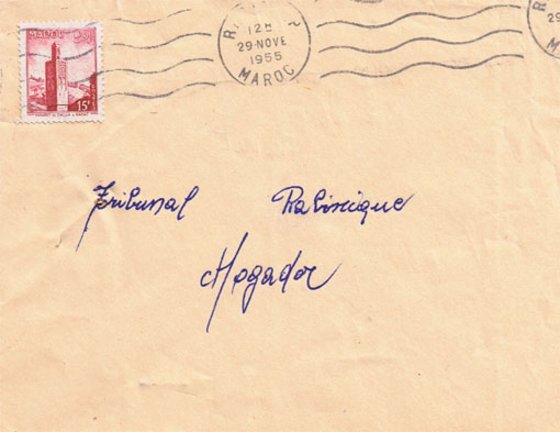 MAROC
15F
12H
29·NOVE
1955
MAROC
29
Tribunal Rabinique
Mogador